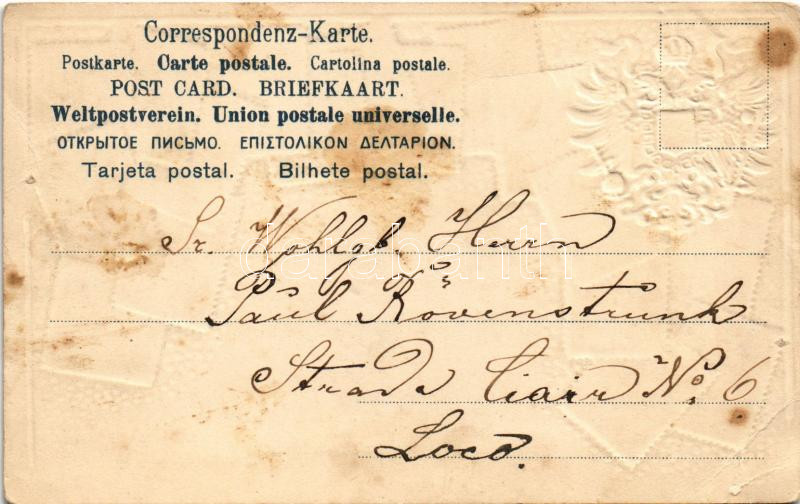 Correspondenz-Karte.
Postkarte. Carte postale. Cartolina postale.
POST CARD. BRIEFKAART.
Weltpostverein. Union postale universelle.
ОТКРЫТОЕ ПИСЬМО. ΕΠΙΣΤΟΛΙΚΟΝ ΔΕΛΤΑΡΙΟΝ.
Tarjeta postal. Bilhete postal.
Sr. Wohlgb. Herrn
darabanth
Paul Rövenstrunk
Strada Ciair No: 6
Loco.